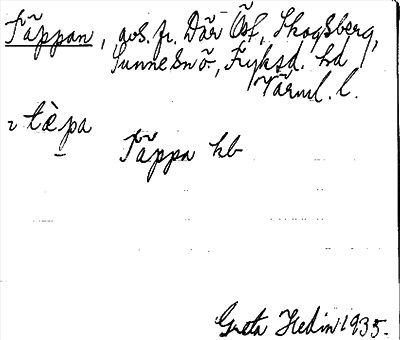 Täppan, avs. fr. Där Öst, Skogsberg,
Sunne sn ö, Fryksd. hd
Värml. l.
2 tèpa
Täppa kb
Greta Hedin 1935.